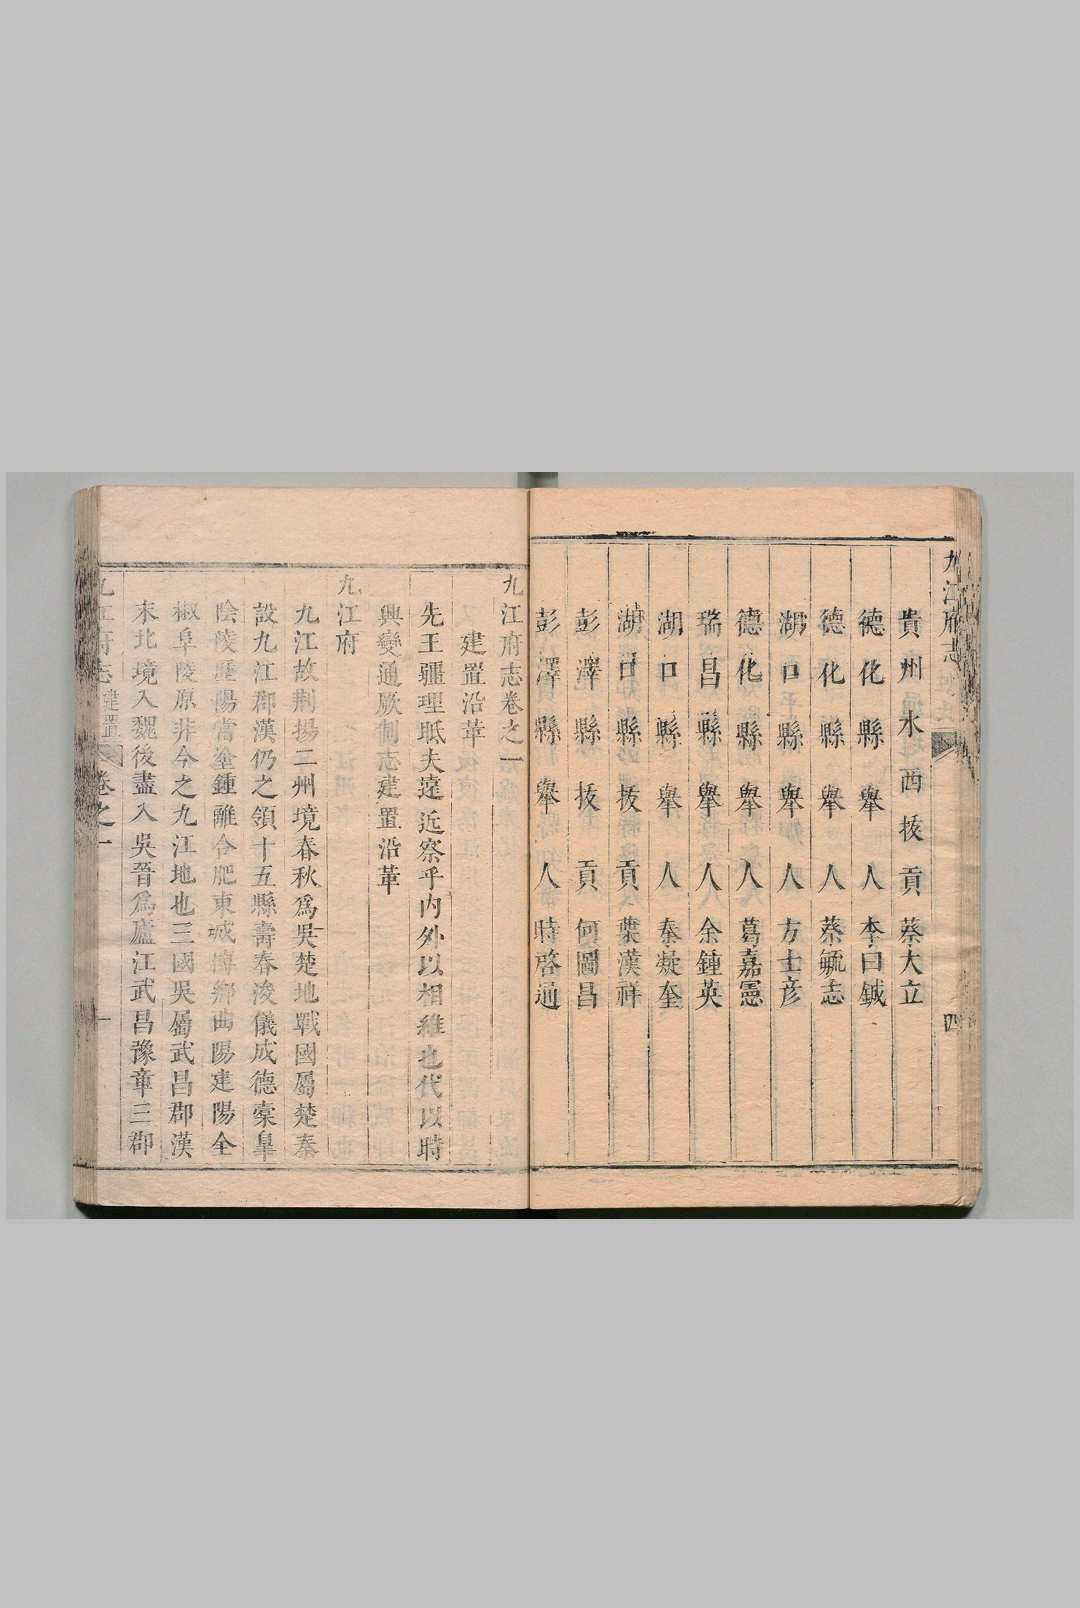 九江府志
四
貴州水西拔貢蔡大立
德化縣舉人李曰鋮
德化縣舉人蔡毓志
湖口縣舉人方士彦
德化縣舉人葛嘉憲
瑞昌縣舉人余鍾英
湖口縣舉人秦凝奎
湖口縣拔貢葉漢祥
彭澤縣拔貢何圖昌
彭澤縣舉人時啓通
九江府志卷之一
建置沿革
先王疆理眂夫遠近察乎内外以相維也代以時
興變通厥制志建置沿革
九江府
九江故荆揚二州境春秋爲吳楚地戰國屬楚秦
設九江郡漢仍之領十五縣壽春浚儀成德橐皐
陰陵歷陽當塗鍾離合肥東城博鄉曲陽建陽全
椒阜陵原非今之九江地也三國吳屬武昌郡漢
末北境入魏後盡入吳晉爲廬江武昌豫章三郡
九江府志 建置 卷之一 一